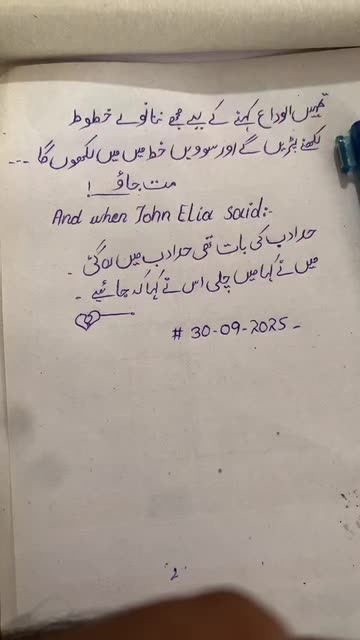 تمہیں الوداع کہنے کے لیے مجھے ننانوے خطوط
لکھنے پڑیں گے اور سوویں خط میں میں لکھوں گا ---
مت جاؤ !
And when John Elia said:-
حد ادب کی بات تھی حد ادب میں رہ گئی -
میں نے کہا میں چلی اس نے کہا کہ جائیے -
# 30-09-2025 -
2